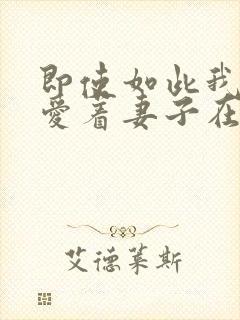 即使如此我
爱着妻子在
艾德莱斯